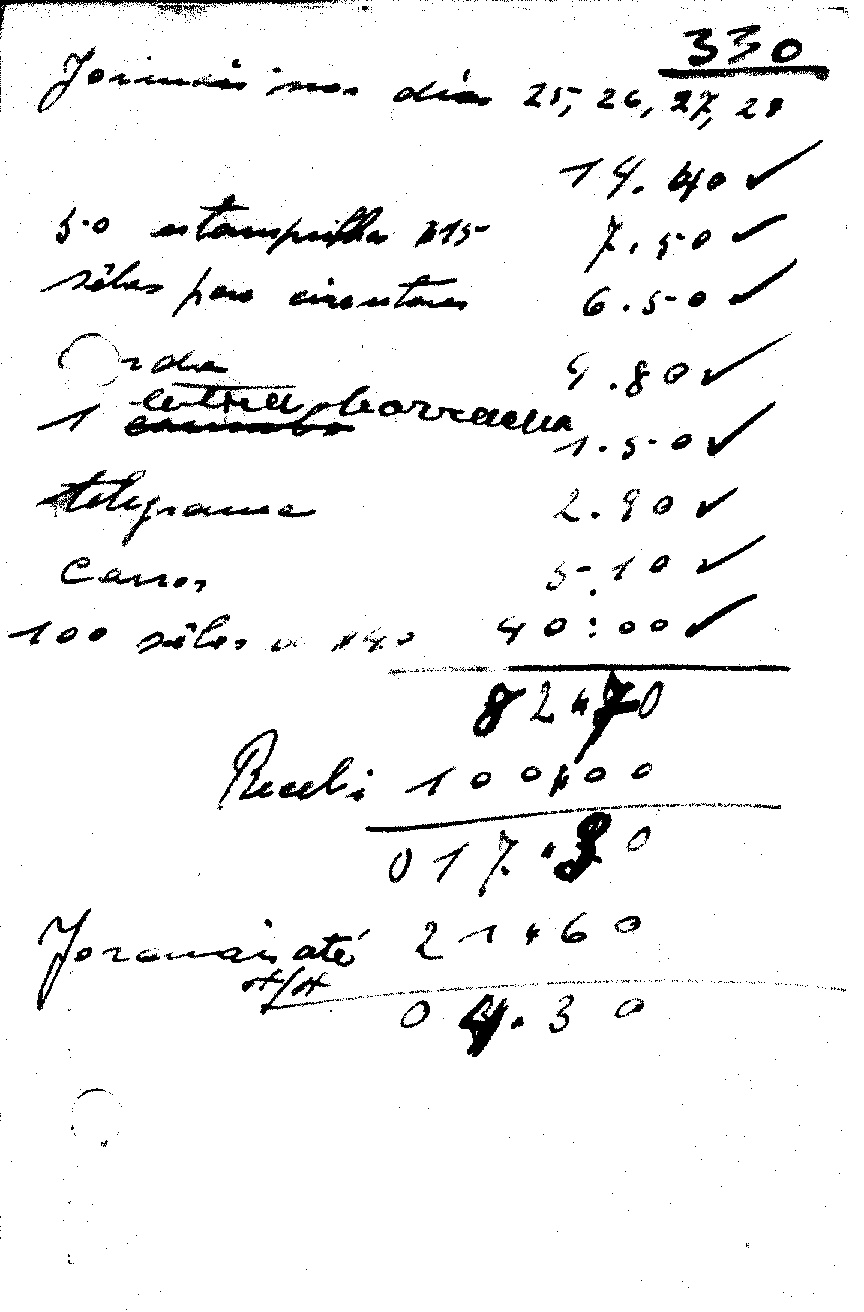 330
Jornais nos dias 25, 26, 27, 28
14.40 ✓
50 estampilha $15 7.50 ✓
sêlos para circulares 6.50 ✓
4.80 ✓
1 carimbo borracha 1.50 ✓
telegrama 2.90 ✓
Carros 5.10 ✓
100 sêlos a $40 40:00 ✓
82.70
Recebi 100$00
017.30
Jornais até 21.60
4/4
04.30